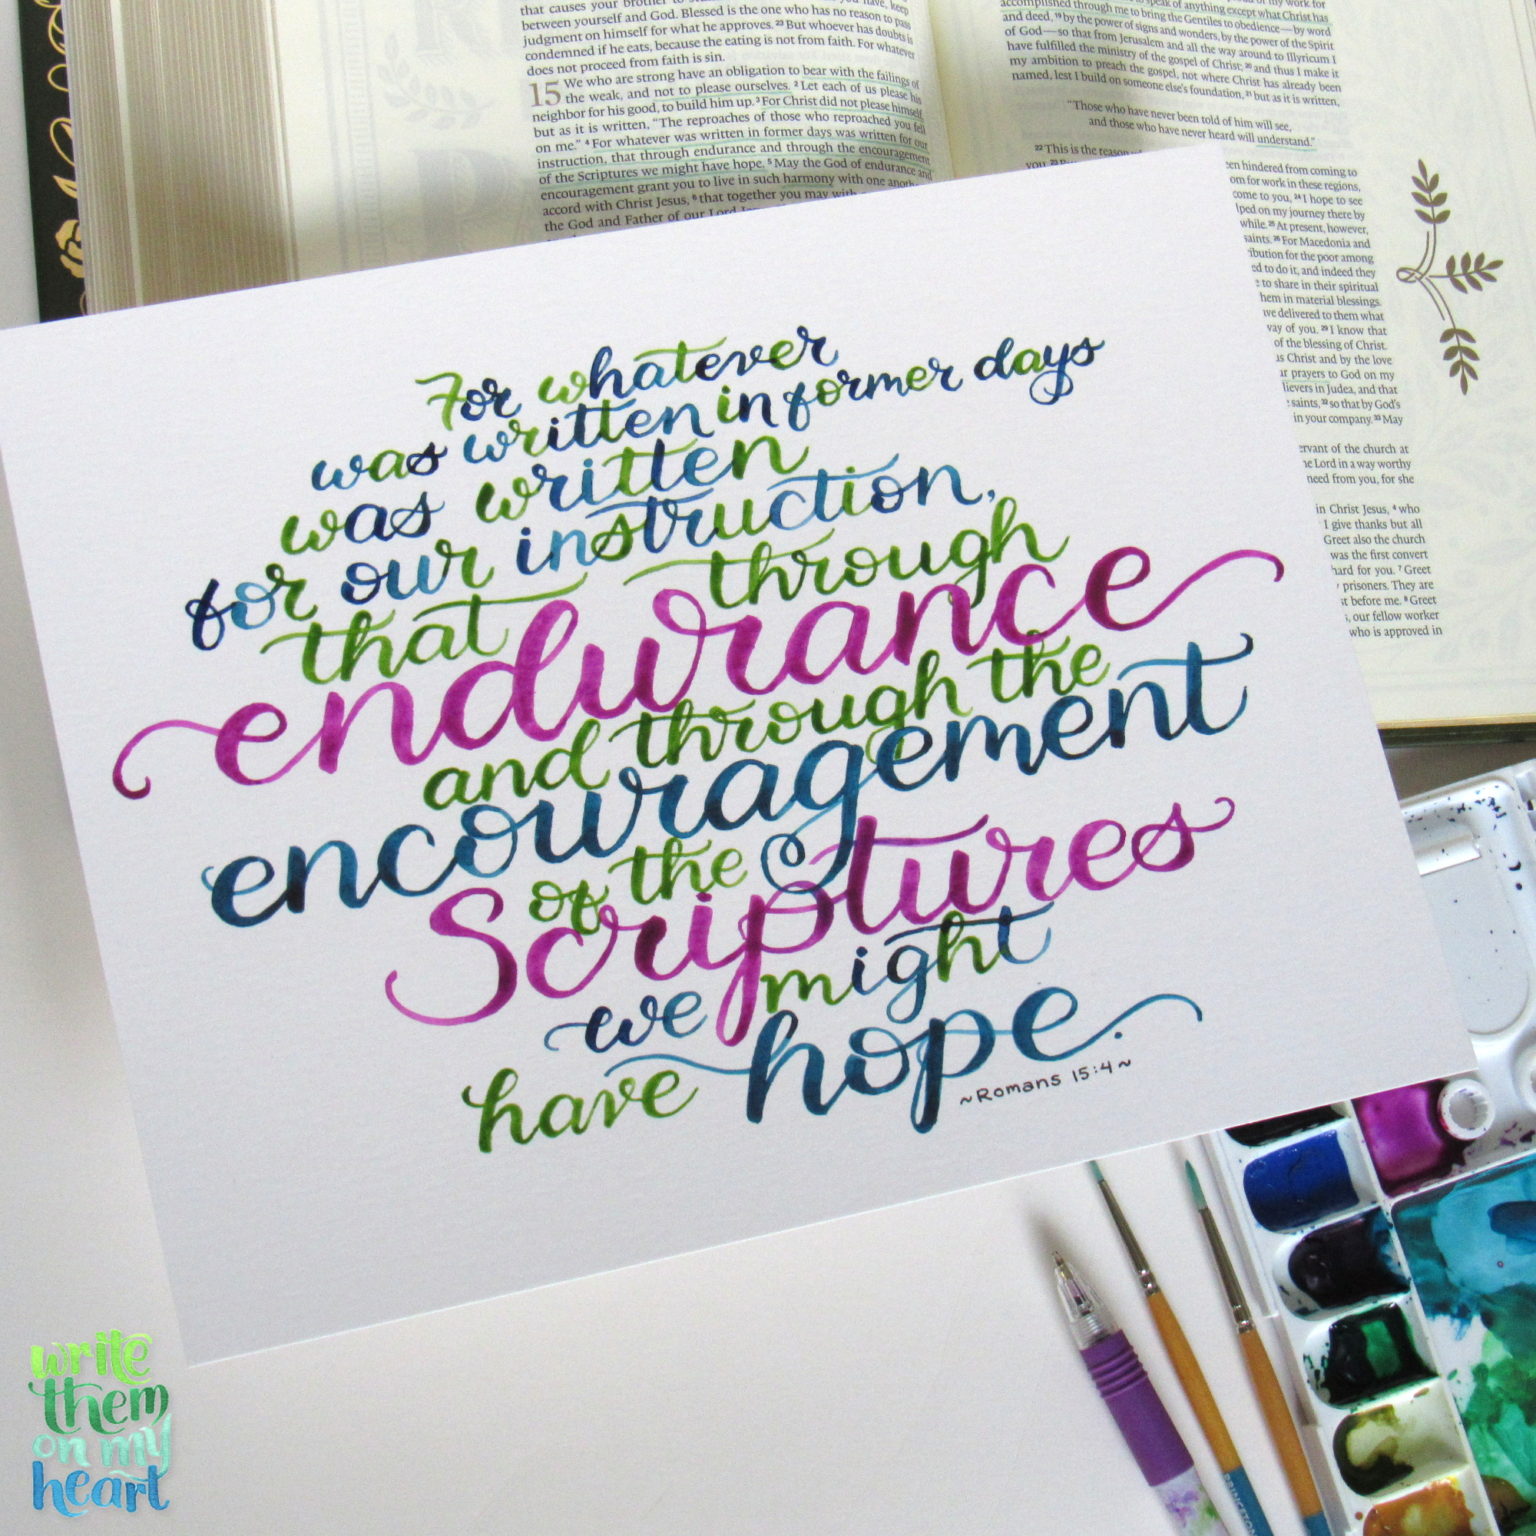 that causes your brother to
between yourself and God. Blessed is the one who has no reason to pass
judgment on himself for what he approves. 23 But whoever has doubts is
condemned if he eats, because the eating is not from faith. For whatever
does not proceed from faith is sin.
15 We who are strong have an obligation to bear with the failings of
the weak, and not to please ourselves. 2 Let each of us please his
neighbor for his good, to build him up. 3 For Christ did not please himself,
but as it is written, "The reproaches of those who reproached you fell
on me." 4 For whatever was written in former days was written for our
instruction, that through endurance and through the encouragement
of the Scriptures we might have hope. 5 May the God of endurance and
encouragement grant you to live in such harmony with one another,
accord with Christ Jesus, 6 that together you may with
the God and Father of our Lord
to speak of anything except what Christ has
accomplished through me to bring the Gentiles to obedience—by word
and deed, 19 by the power of signs and wonders, by the power of the Spirit
of God—so that from Jerusalem and all the way around to Illyricum I
have fulfilled the ministry of the gospel of Christ; 20 and thus I make it
my ambition to preach the gospel, not where Christ has already been
named, lest I build on someone else's foundation, 21 but as it is written,
"Those who have never been told of him will see,
and those who have never heard will understand."
22 This is the reason
been hindered from coming to
room for work in these regions,
come to you, 24 I hope to see
helped on my journey there by
while. 25 At present, however,
saints. 26 For Macedonia and
contribution for the poor among
ed to do it, and indeed they
to share in their spiritual
them in material blessings.
have delivered to them what
way of you. 29 I know that
of the blessing of Christ.
Christ and by the love
prayers to God on my
believers in Judea, and that
saints, 32 so that by God's
in your company. 33 May
servant of the church at
the Lord in a way worthy
need from you, for she
in Christ Jesus, 4 who
I give thanks but all
Greet also the church
was the first convert
hard for you. 7 Greet
prisoners. They are
before me. 8 Greet
our fellow worker
who is approved in
For whatever
was written in former days
was written
for our instruction,
that through
endurance
and through the
encouragement
of the
Scriptures
we might
have hope.
~Romans 15:4~
write
them
on my
heart
PRINCETON